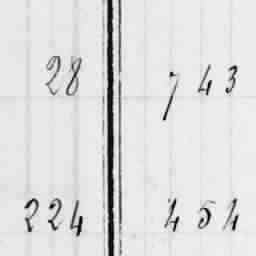 28 743
224 454